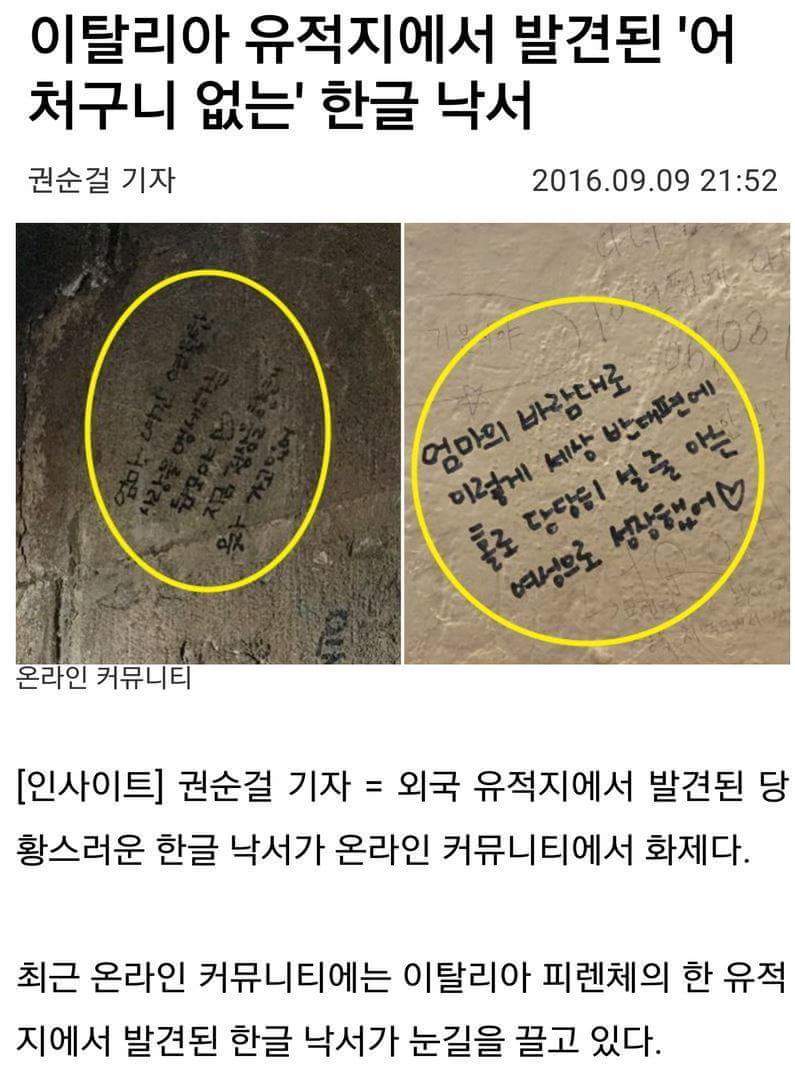 이탈리아 유적지에서 발견된 '어
처구니 없는' 한글 낙서
권순걸 기자
2016.09.09 21:52
엄마의 바람대로
이렇게 세상 반대편에
홀로 당당히 설 줄 아는
여성으로 성장했어♡
06/08
온라인 커뮤니티
[인사이트] 권순걸 기자 = 외국 유적지에서 발견된 당
황스러운 한글 낙서가 온라인 커뮤니티에서 화제다.
최근 온라인 커뮤니티에는 이탈리아 피렌체의 한 유적
지에서 발견된 한글 낙서가 눈길을 끌고 있다.